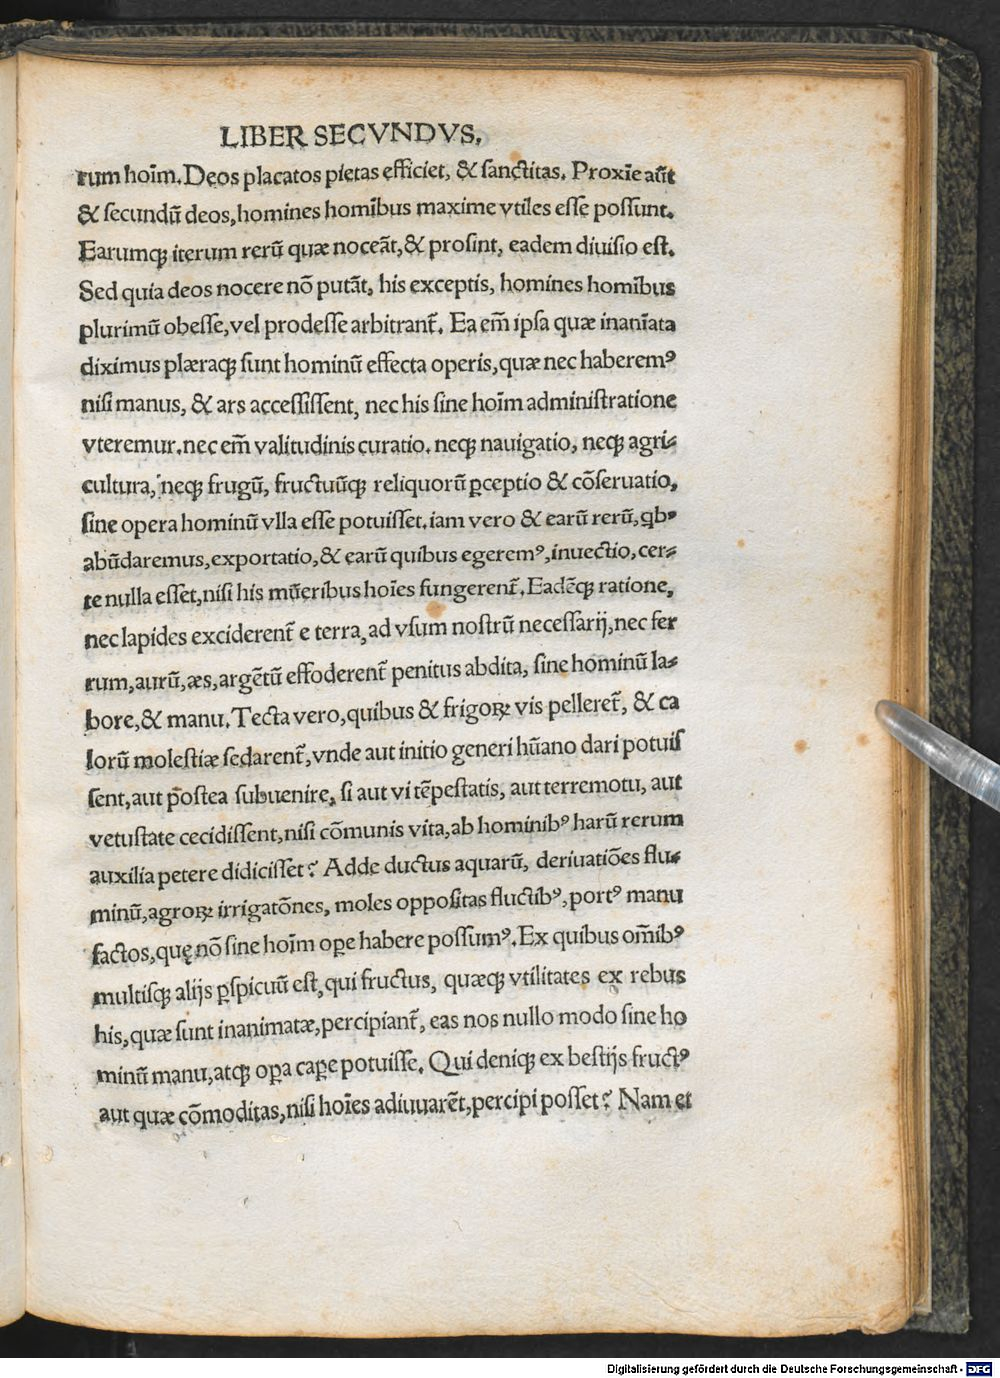 LIBER SECVNDVS.
rum hoīm. Deos placatos pietas efficiet, & sanctitas. Proxīe aūt
& secundū deos, homines homībus maxime vtiles esse possunt.
Earumqꝫ iterum rerū quæ noceāt, & prosint, eadem diuisio est.
Sed quia deos nocere nō putāt, his exceptis, homines homībus
plurimū obesse, vel prodesse arbitrant̃. Ea em̄ ipsa quæ inanīata
diximus plæraqꝫ sunt hominū effecta operis, quæ nec haberemꝰ
nisi manus, & ars accessissent, nec his sine hoīm administratione
vteremur. nec em̄ valitudinis curatio. neqꝫ nauigatio, neqꝫ agri-
cultura, neqꝫ frugū, fructuūqꝫ reliquorū ꝑceptio & cōseruatio,
sine opera hominū vlla esse potuisset. iam vero & earū rerū, qbꝰ
abūdaremus, exportatio, & earū quibus egeremꝰ, inuectio, cer-
te nulla esset, nisi his mūeribus hoīes fungerent̃. Eadēqꝫ ratione,
nec lapides exciderent̃ e terra, ad vsum nostrū necessarij, nec fer
rum, aurū, æs, argētū effoderent̃ penitus abdita, sine hominū la-
bore, & manu. Tecta vero, quibus & frigoꝝ vis pelleret̃, & ca
lorū molestiæ sedarent̃, vnde aut initio generi hūano dari potuis
sent, aut p̄ostea subuenire, si aut vi tēpestatis, aut terremotu, aut
vetustate cecidissent, nisi cōmunis vita, ab hominibꝰ harū rerum
auxilia petere didicisset? Adde ductus aquarū, deriuatiōes flu-
minū, agroꝝ irrigatōnes, moles oppositas fluctibꝰ, portꝰ manu
factos, quę nō sine hoīm oꝑe habere possumꝰ. Ex quibus om̄ibꝰ
multisqꝫ alijs ꝑspicuū est, qui fructus, quæqꝫ vtilitates ex rebus
his, quæ sunt inanimatæ, percipiant̃, eas nos nullo modo sine ho
minū manu, atqꝫ oꝑa caꝑe potuisse. Qui deniqꝫ ex bestijs fructꝰ
aut quæ cōmoditas, nisi hoīes adiuuarēt, percipi posset? Nam et
Digitalisierung gefördert durch die Deutsche Forschungsgemeinschaft - DFG